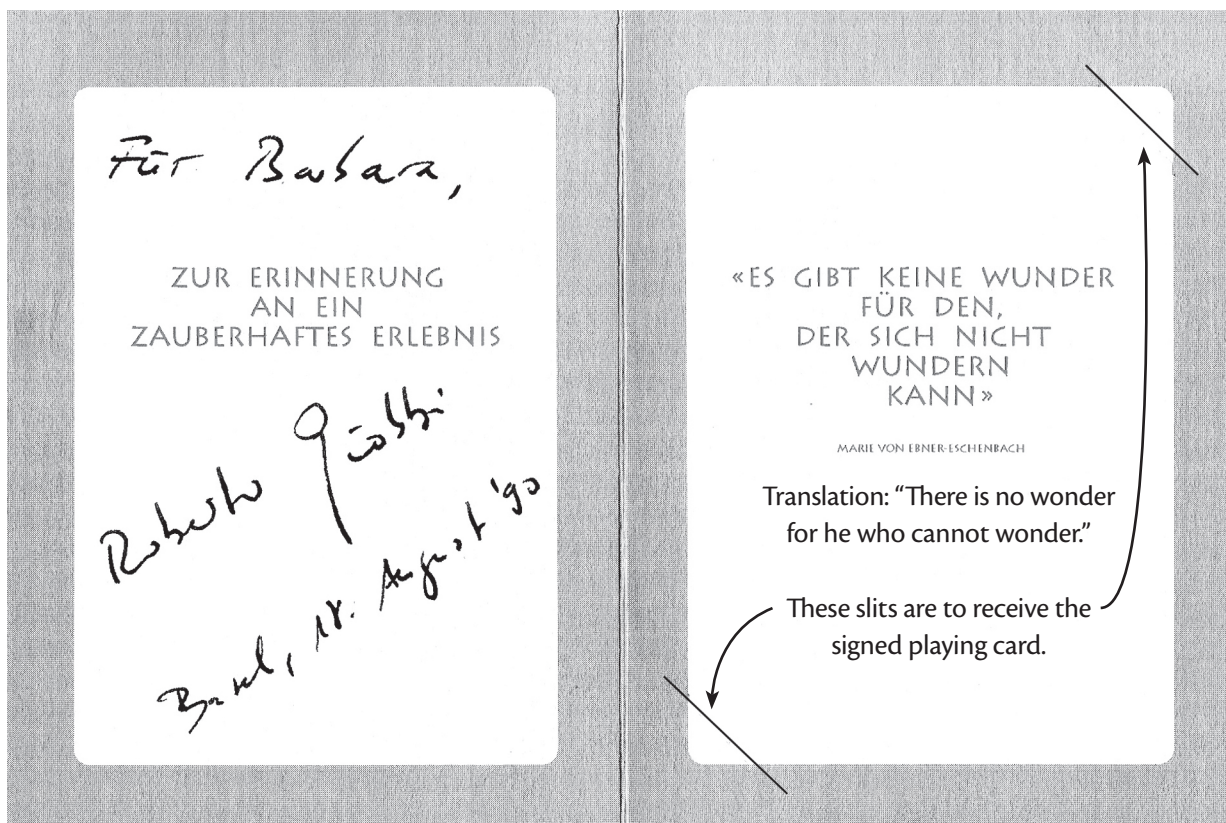 Für Barbara,
ZUR ERINNERUNG
AN EIN
ZAUBERHAFTES ERLEBNIS
Roberto Giobbi
Basel, 18. August '90
«ES GIBT KEINE WUNDER
FÜR DEN,
DER SICH NICHT
WUNDERN
KANN»
MARIE VON EBNER-ESCHENBACH
Translation: “There is no wonder
for he who cannot wonder.”
These slits are to receive the
signed playing card.